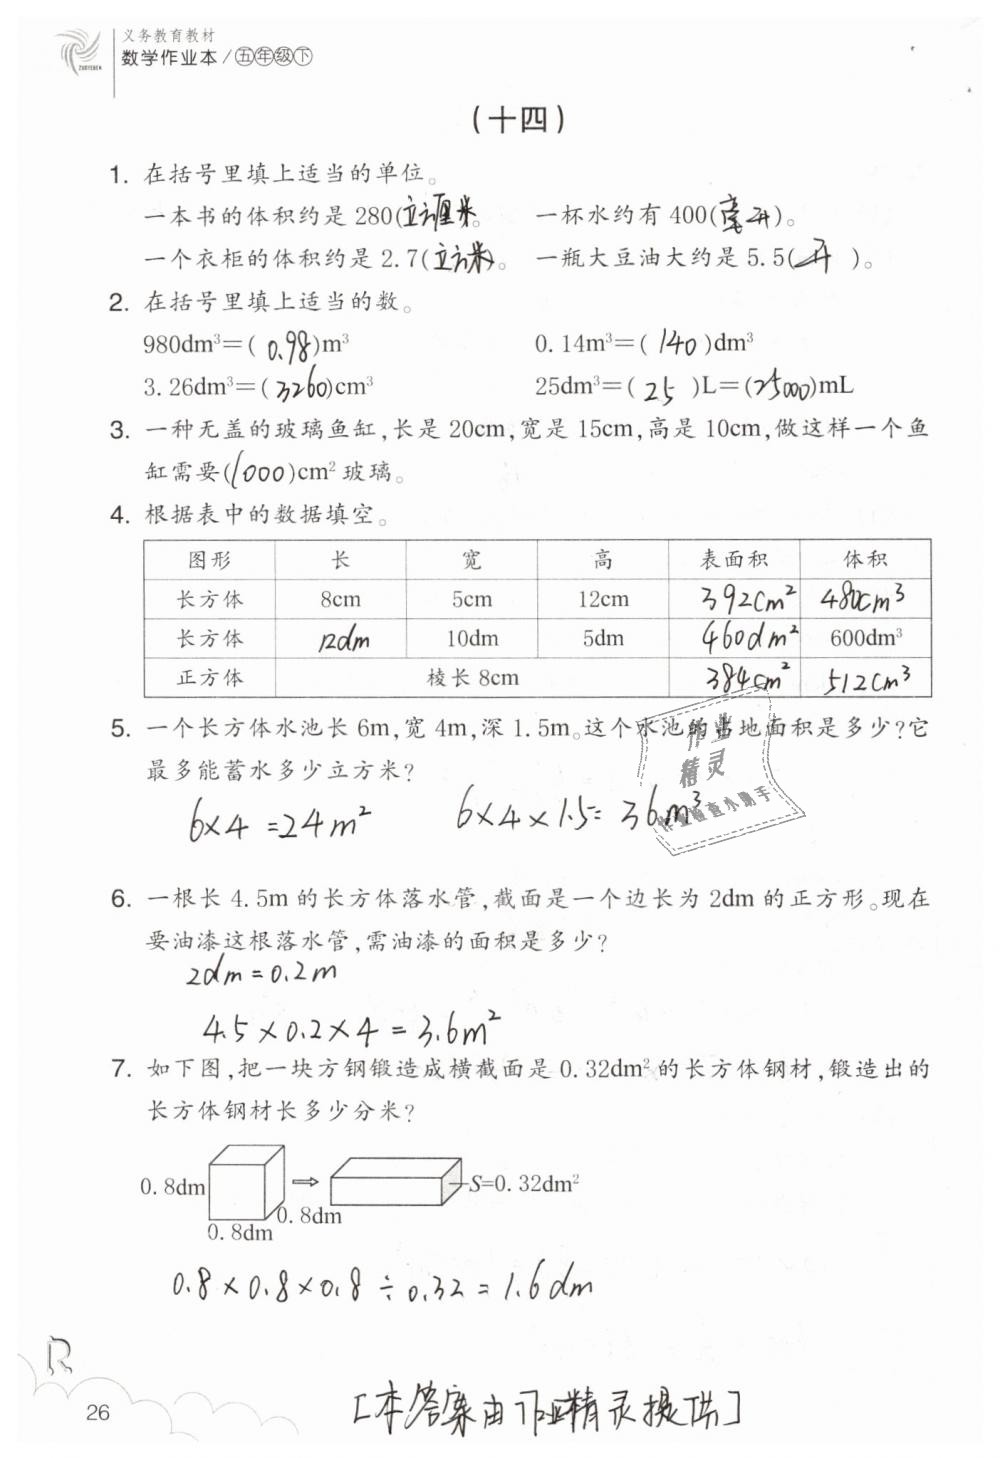 义务教育教材
数学作业本/五年级下
ZUOYEBEN
(十四)
1. 在括号里填上适当的单位。
一本书的体积约是280(立方厘米。 一杯水约有400(毫升)。
一个衣柜的体积约是2.7(立方米)。 一瓶大豆油大约是5.5(升 )。
2. 在括号里填上适当的数。
980dm³=( 0.98)m³ 0.14m³=( 140 )dm³
3.26dm³=( 3260)cm³ 25dm³=( 25 )L=(25000)mL
3. 一种无盖的玻璃鱼缸,长是20cm,宽是15cm,高是10cm,做这样一个鱼
缸需要(1000)cm²玻璃。
4. 根据表中的数据填空。
图形 长 宽 高 表面积 体积
长方体 8cm 5cm 12cm 392cm² 480cm³
长方体 12dm 10dm 5dm 460dm² 600dm³
正方体 棱长8cm 384cm² 512cm³
5. 一个长方体水池长6m,宽4m,深1.5m。这个水池的占地面积是多少?它
最多能蓄水多少立方米?
6×4=24m² 6×4×1.5=36m³
作业
精灵
作业检查小助手
6. 一根长4.5m的长方体落水管,截面是一个边长为2dm的正方形。现在
要油漆这根落水管,需油漆的面积是多少?
2dm=0.2m
4.5×0.2×4=3.6m²
7. 如下图,把一块方钢锻造成横截面是0.32dm²的长方体钢材,锻造出的
长方体钢材长多少分米?
0.8dm
0.8dm
0.8dm
S=0.32dm²
0.8×0.8×0.8÷0.32=1.6dm
R
26
[本答案由作业精灵提供]